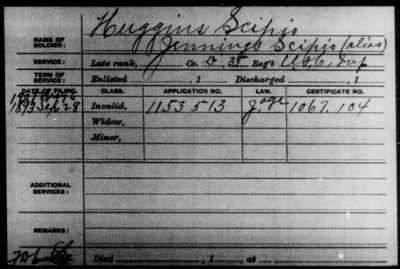 NAME OF SOLDIER: Huggins Scipio
Jennings Scipio (alias)
SERVICE: Late rank, Co. D, 35 Reg't U.S.C. Inf
TERM OF SERVICE: Enlisted , 1 Discharged , 1
DATE OF FILING. CLASS. APPLICATION NO. LAW. CERTIFICATE NO.
1893 Sep 28 Invalid, 1153 513 1067.104
Widow,
Minor,
ADDITIONAL SERVICES:
REMARKS:
Died , 1 , at